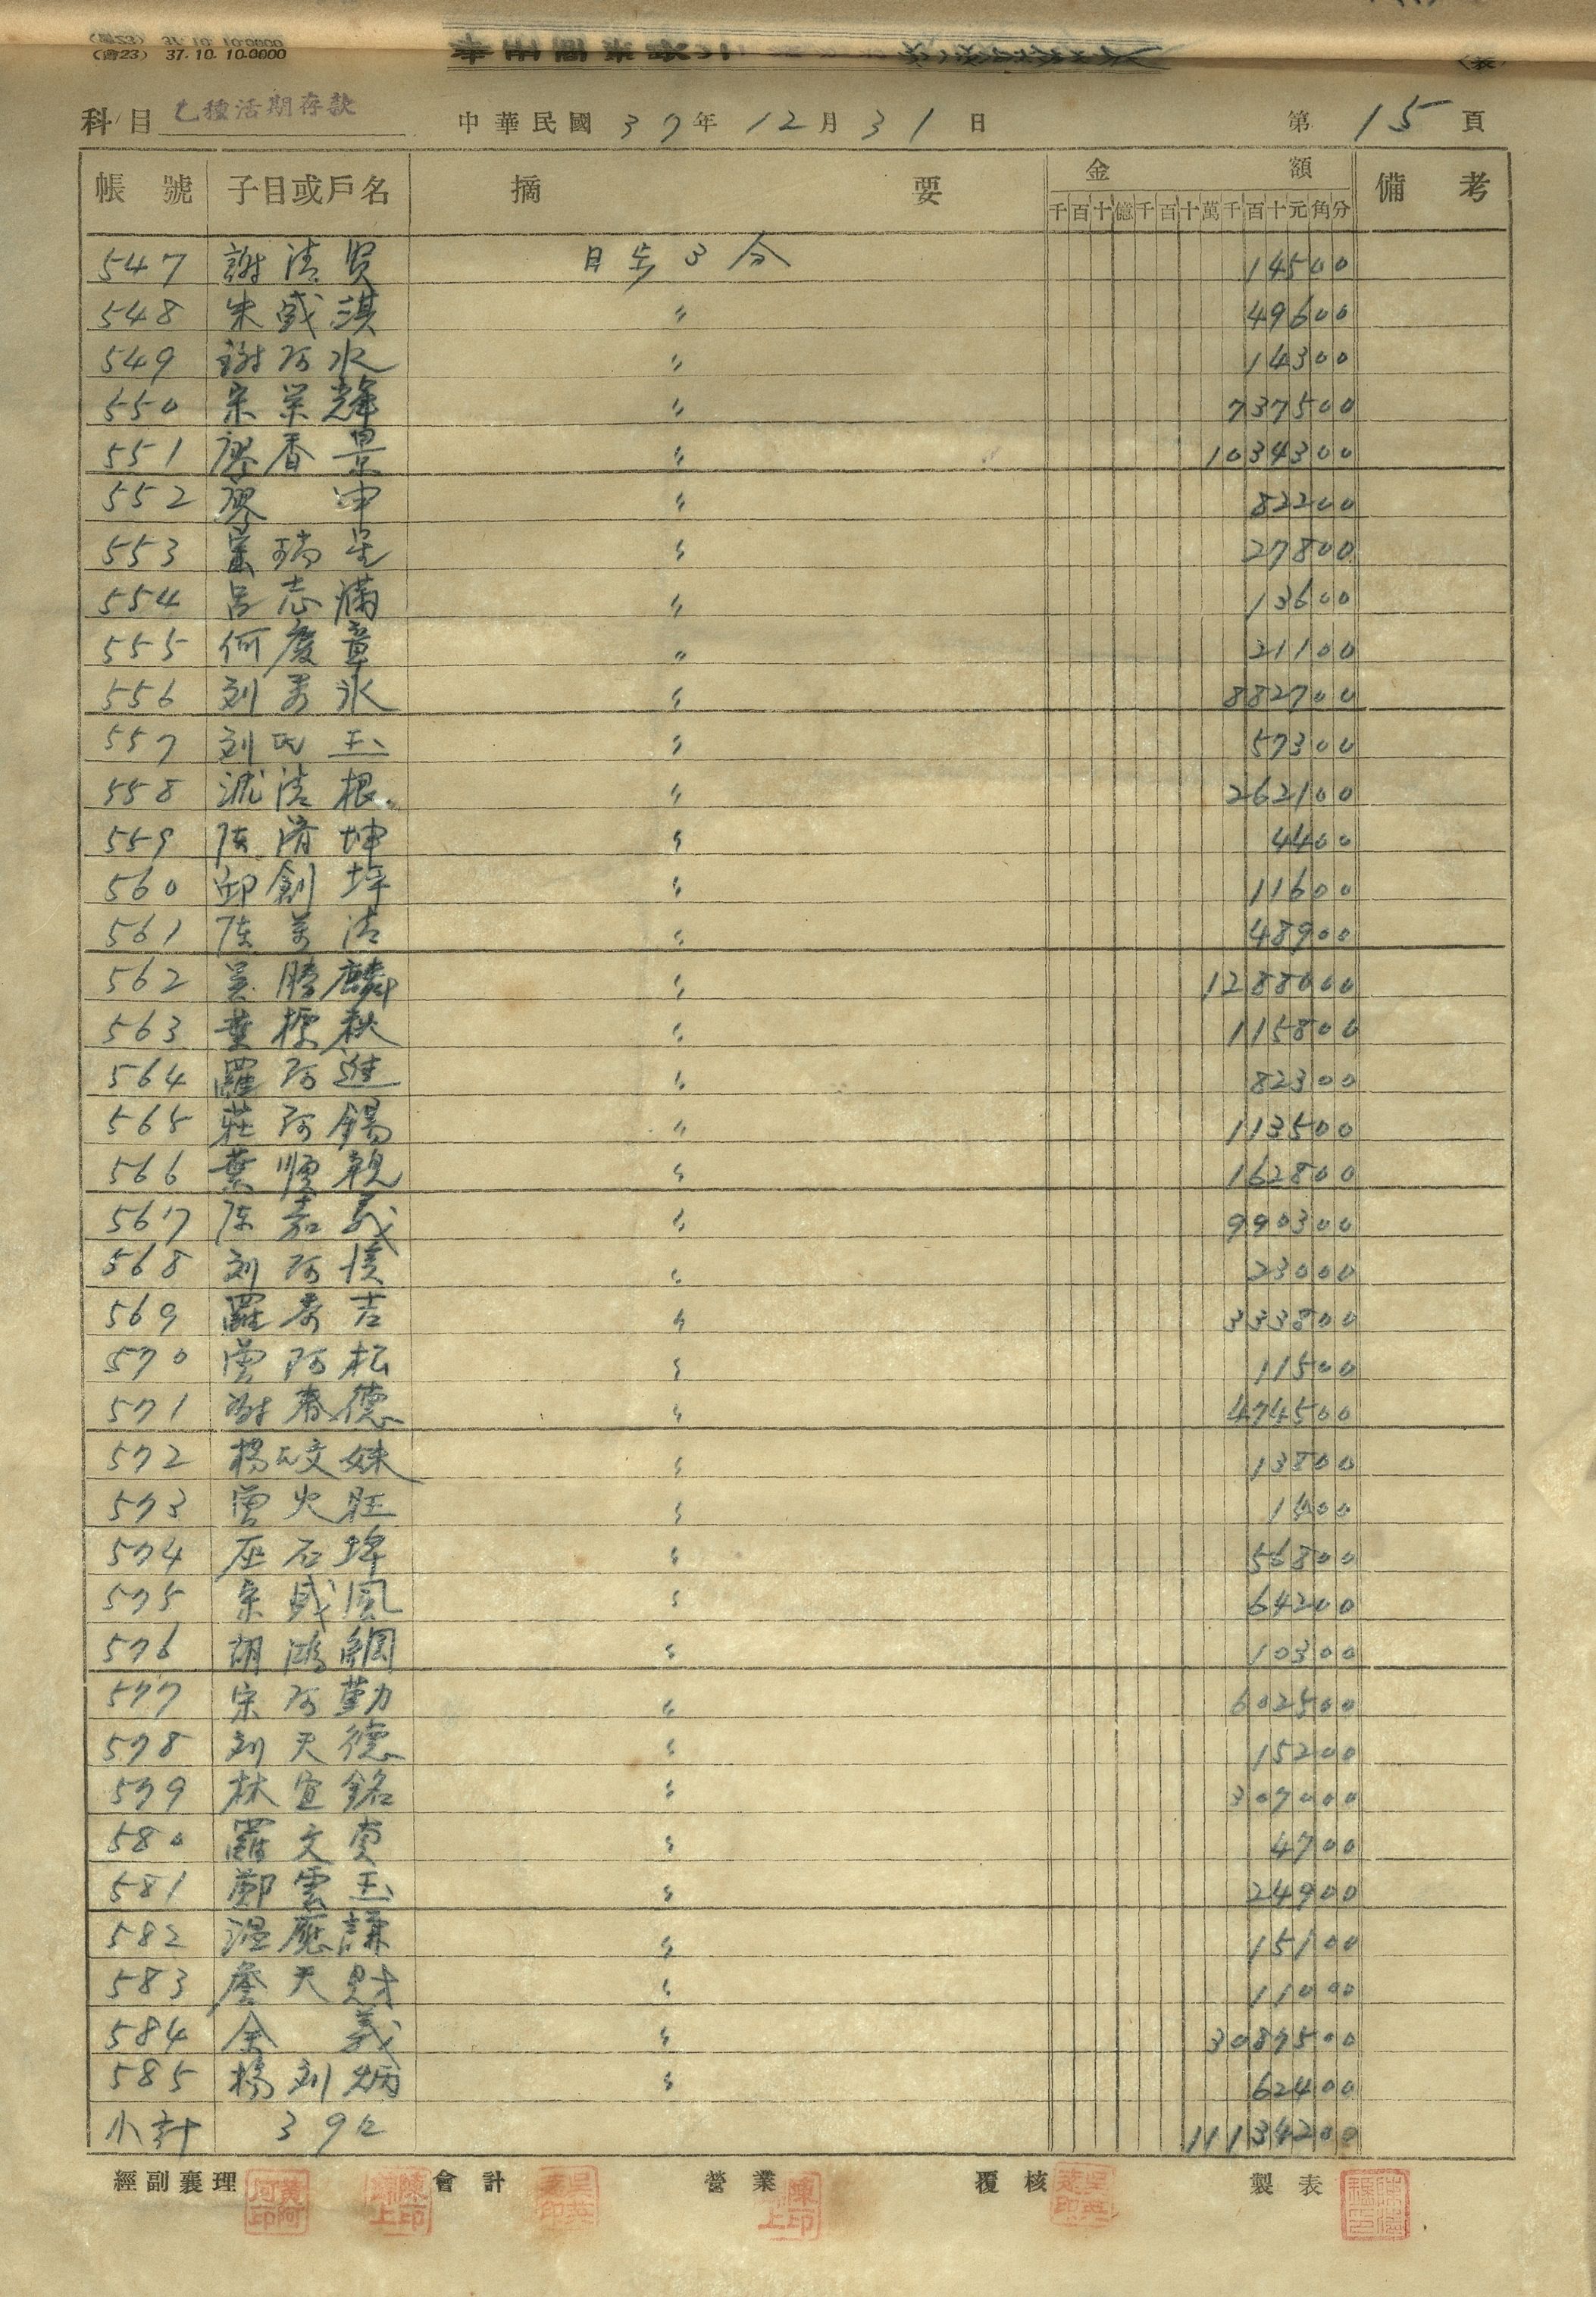 (會23) 37. 10. 10.0000
科目 乙種活期存款 中華民國 37年 12月 31日 第 15 頁
帳號 子目或戶名 摘要 金額 備考
千百十億千百十萬千百十元角分
547 謝清賢 日步3分 14500
548 朱盛淇 〃 49600
549 謝阿水 〃 14300
550 宋榮輝 〃 737500
551 廖香景 〃 1034300
552 廖 申 〃 82200
553 葉瑞星 〃 27800
554 呂志滿 〃 13600
555 何慶章 〃 21100
556 刘 氷 〃 882700
557 刘氏玉 〃 57300
558 沈清根 〃 262100
559 陳清坤 〃 4400
560 邱創坪 〃 11600
561 陳萬清 〃 48900
562 吳勝麟 〃 1288000
563 葉標秋 〃 115800
564 羅阿進 〃 82300
565 莊阿錫 〃 113500
566 葉順親 〃 162800
567 陳嘉義 〃 990300
568 刘阿 〃 23000
569 羅秀吉 〃 333800
570 曾阿松 〃 11500
571 謝春德 〃 474500
572 楊氏交妹 〃 13800
573 曾火旺 〃 1400
574 石埤 〃 56800
575 宋盛風 〃 64200
576 胡鴻綱 〃 10300
577 宋阿勤 〃 602500
578 刘天德 〃 15200
579 林宜銘 〃 307000
580 羅文 〃 4700
581 鄭雲玉 〃 24900
582 温應謙 〃 15100
583 詹天財 〃 11000
584 余 義 〃 3087500
585 楊刘炳 〃 62400
小計 39口 11134200
經副襄理 會計 營業 覆核 製表